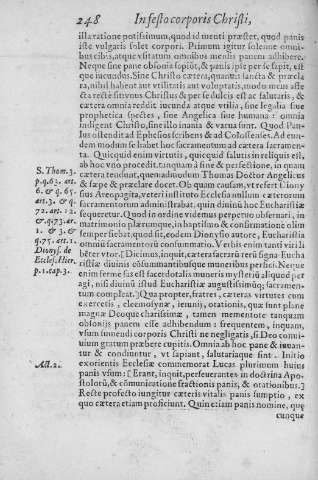 248 In festo corporis Christi,
illa ratione potissimum, quod id menti præstet, quod panis
iste vulgaris solet corpori. Primum igitur solenne omni-
bus cibis, atque vsitatum omnibus mensis panem adhibere.
Neque sine pane obsonia sapiūt, & panis ipse per se sapit, est-
que iucundus. Sine Christo cætera, quantūuis sancta & præcla
ra, nihil habent aut vtilitatis aut voluptatis, modo mens affe
cta recte sit: vnus Christus & per se dulcis est ac salutaris, &
cætera omnia reddit iucunda atque vtilia, siue legalia siue
prophetica spectes, siue Angelica siue humana: omnia
indigent Christo, sine illo inania & vacua sunt. Quod Pau-
lus ostendit ad Ephesios scribens & ad Colossenses. Ad eun-
dem modum se habet hoc sacramentum ad cætera sacramen-
ta. Quicquid enim virtutis, quicquid salutis in reliquis est,
ab hoc vno procedit, tanquam à fine & perfectione, in quam
cætera tendunt, quemadmodum Thomas Doctor Angelicus
& sæpe & præclare docet. Ob quam causam, vt refert Diony
sius Areopagita, veteri instituto Ecclesia nullum cæterorum
sacramentorum administrabat, quin diuinū hoc Eucharistiæ
sequeretur. Quod in ordine videmus perpetuo obseruari, in
matrimonio plærunque, in baptismo & consirmatione olim
semper fiebat. quod sit, eodem Dionysio autore, Eucharistia
omniū sacramentorū consummatio. Verbis enim tanti viri li
bēter vtor. [Dicimus, inquit, cætera sacra rū rerū signa Eucha
ristiæ diuinis obsummantibusque muneribus perfici. Neque
enim ferme fas est sacerdotalis muneris mysteriū aliquod per
agi, nisi diuinū istud Eucharistiæ augustissimūq; sacramen-
tum compleat.] Qua propter, fratres, cæteras virtutes cum
exercetis, eleemosynæ, ieiunij, orationis, quæ sunt plane
magnæ Deoque charissimæ, tamen mementote tanquam
obsonijs panem esse adhibendum: frequentem, inquam,
vsum sumendi corporis Christi ne negligatis, si Deo conui-
uium gratum præbere cupitis. Omnia ab hoc pane & iuuan-
tur & condiuntur, vt sapiant, salutariaque sint. Initio
exorientis Ecclesiæ commemorat Lucas plurimum huius
panis vsum: [Erant, inquit, perseuerantes in doctrina Apo-
stolorū, & comunicatione fractionis panis, & orationibus.]
Recte profecto iungitur cæteris vitalis panis sumptio, ex
quo cætera etiam proficiunt. Quin etiam panis nomine, que
cunque
S. Thom. 3.
p. q. 63. art.
6. & q. 65.
art. 3. & q.
72. art. 12.
& q. 73. ar.
1. & 3. &
q. 75. art. 1.
Dionys. de
Eccles. Hier.
p. 1. cap. 3.
Act. 2.